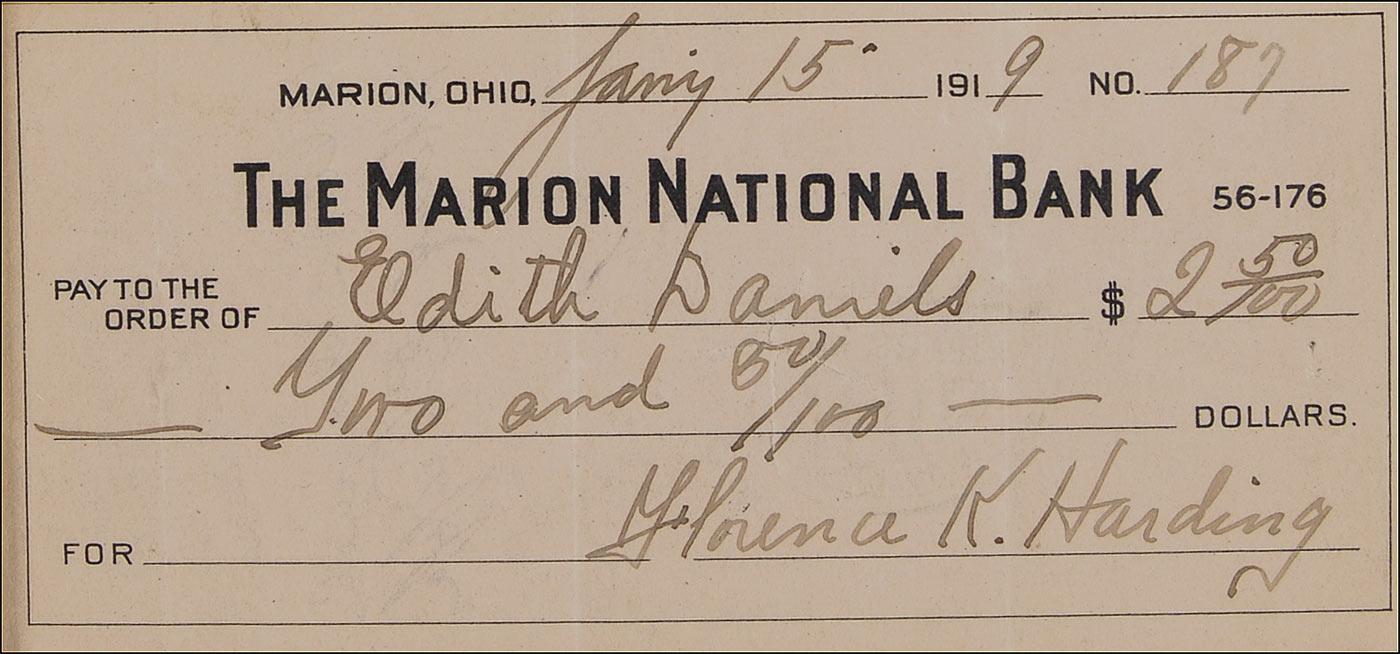 MARION, OHIO, Jany 15" 1919 NO. 187
THE MARION NATIONAL BANK 56-176
PAY TO THE
ORDER OF Edith Daniels $ 2 50/100
Two and 50/100 — DOLLARS.
Florence K. Harding
FOR